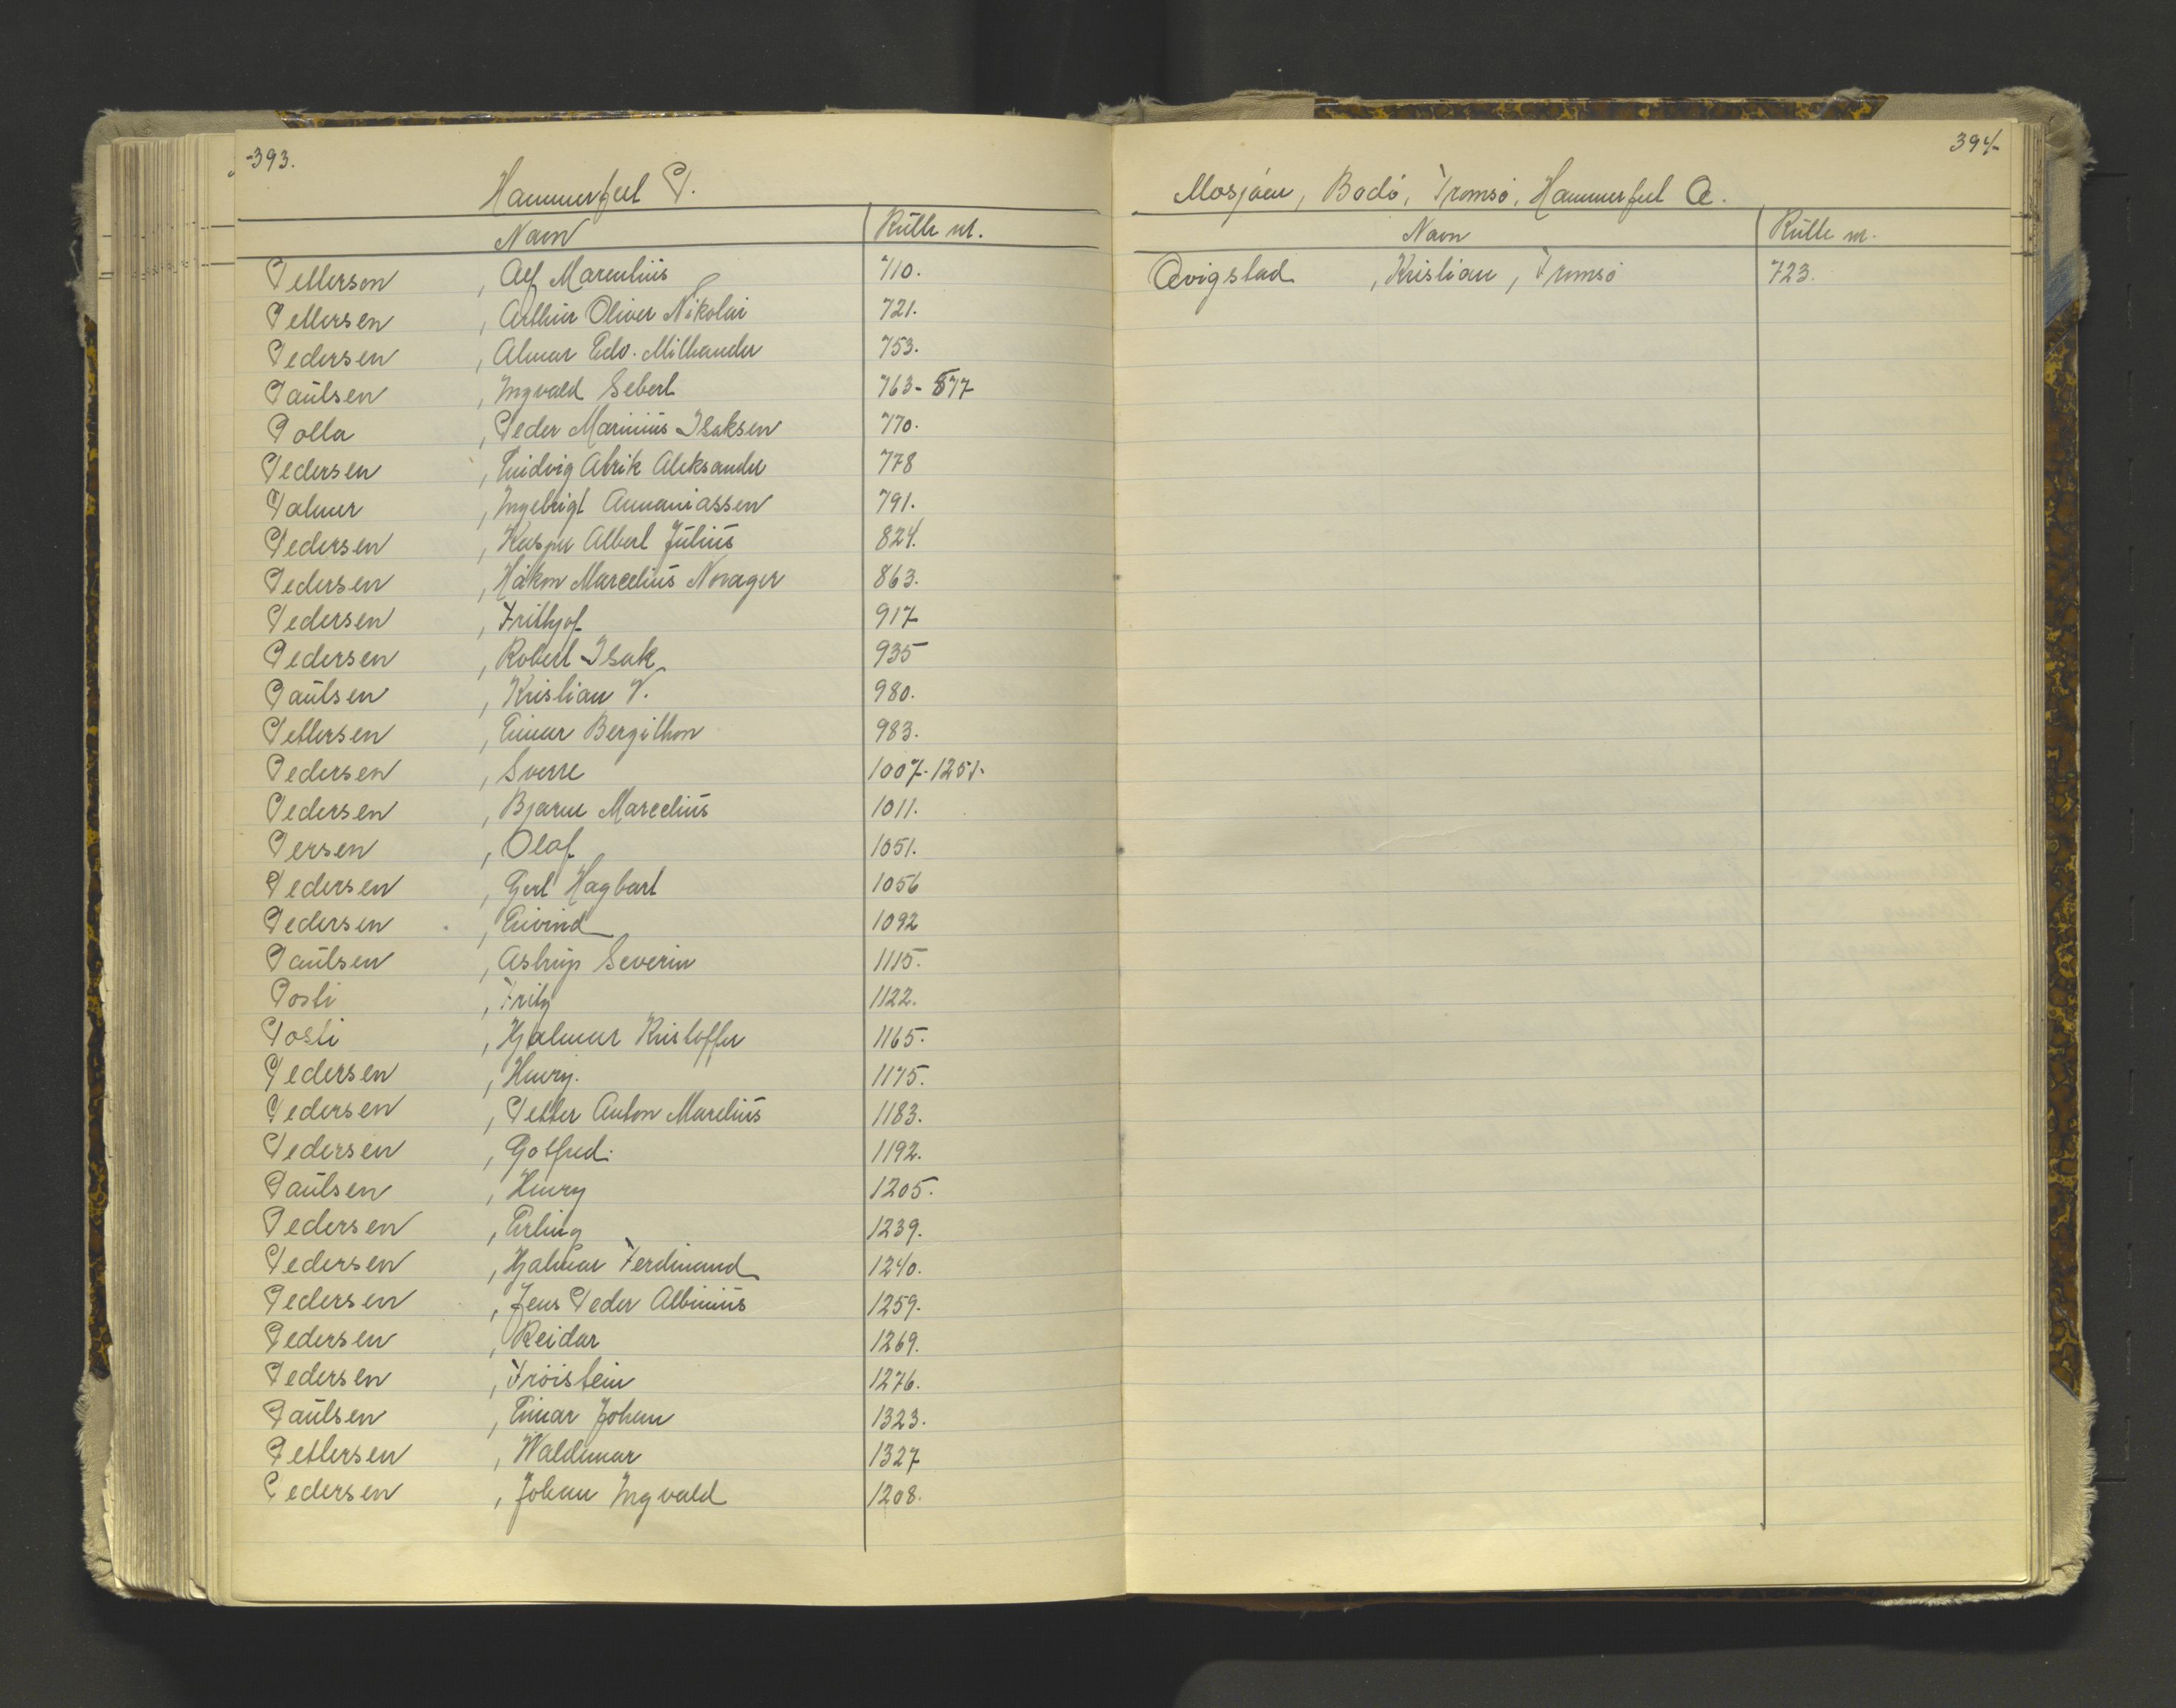 393.
Hammerfest P.
Navn Rulle nr.
Pettersen, Alf Marentius 710.
Pettersen, Arthur Oliver Nikolai 721.
Pedersen, Almar Edv. Mithander 753.
Paulsen, Ingvald Sebert 763-877
Polla, Peder Marinius Isaksen 770.
Pedersen, Ludvig Alrik Aleksander 778
Palmer, Ingebrigt Annaniassen 791.
Pedersen, Kasper Albert Julius 824.
Pedersen, Håkon Marcelius Norager 863.
Pedersen, Frithjof 917
Pedersen, Robert Isak 935
Paulsen, Kristian V. 980.
Pettersen, Einar Bergithon 983.
Pedersen, Sverre 1007-1251.
Pedersen, Bjarne Marcelius 1011.
Persen, Olaf 1051.
Pedersen, Gert Hagbart 1056
Pedersen, Eivind 1092
Paulsen, Astrup Severin 1115.
Posti, Fritz 1122.
Posti, Hjalmar Kristoffer 1165.
Pedersen, Henry. 1175.
Pedersen, Petter Anton Marelius 1183.
Pedersen, Gotfred. 1192.
Paulsen, Henry 1205.
Pedersen, Erling 1239.
Pedersen, Hjalmar Ferdinand 1240.
Pedersen, Jens Peder Albinius 1259.
Pedersen, Reidar 1269.
Pedersen, Fröistein 1276.
Paulsen, Einar Johan 1323.
Pettersen, Waldemar 1327
Pedersen, Johan Ingvald 1208.
394
Mosjöen, Bodö, Tromsö, Hammerfest Q.
Navn Rulle nr.
Qvigstad, Kristian, Tromsö 723.